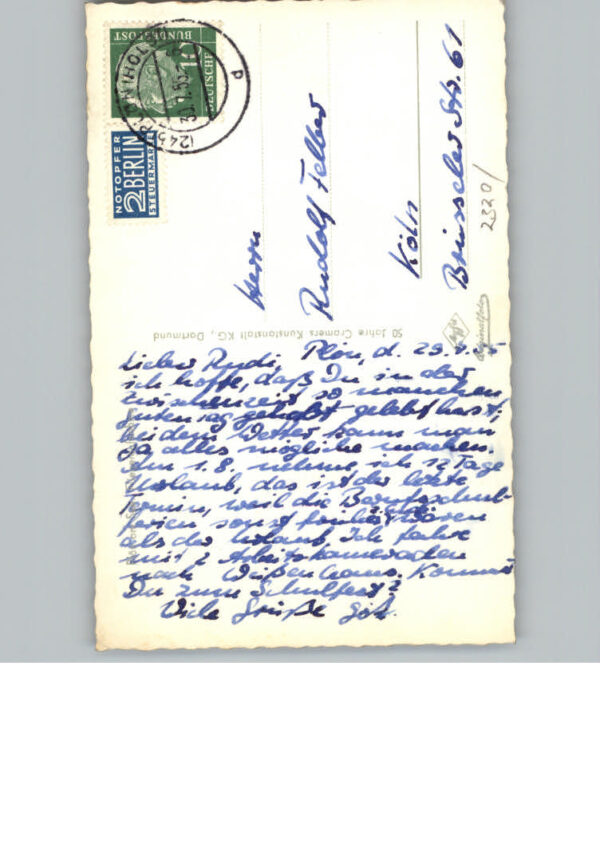 DEUTSCHE
BUNDESPOST
10
NOTOPFER
2 BERLIN
STEUERMARKE
Herrn
Rudolf Felber
Köln
Brüsseler Str. 61
2320/
50 Jahre Cramers Kunstanstalt KG., Dortmund
Agfa
Originalfoto
Lieber Rudi, Plön, d. 29.7.55
ich hoffe, daß Du in der
Zwischenzeit so manchen
guten Tag gehabt gelebt hast;
bei dem Wetter kann man
ja alles mögliche machen.
Am 1.8. nehme ich 12 Tage
Urlaub, das ist der letzte
Termin, weil die Berufsschul-
ferien sonst früher wären
als der Urlaub. Ich fahre
mit 2 Arbeitskameraden
nach Weißenhaus. Kommst
Du zum Schulfest?
Viele Grüße